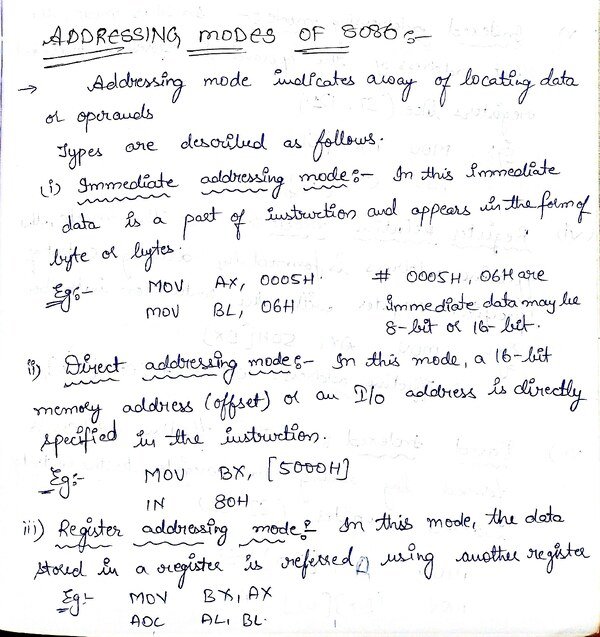 ADDRESSING MODES OF 8086:-
→ Addressing mode indicates a way of locating data
or operands
Types are described as follows.
(i) Immediate addressing mode:- In this Immediate
data is a part of instruction and appears in the form of
byte or bytes.
Eg:- MOV AX, 0005H # 0005H, 06H are
MOV BL, 06H immediate data may be
8-bit or 16-bit.
ii) Direct addressing mode:- In this mode, a 16-bit
memory address (offset) or an I/O address is directly
specified in the instruction.
Eg:- MOV BX, [5000H]
IN 80H
iii) Register addressing mode:- In this mode, the data
stored in a register is referred using another register
Eg:- MOV BX, AX
ADC AL, BL.